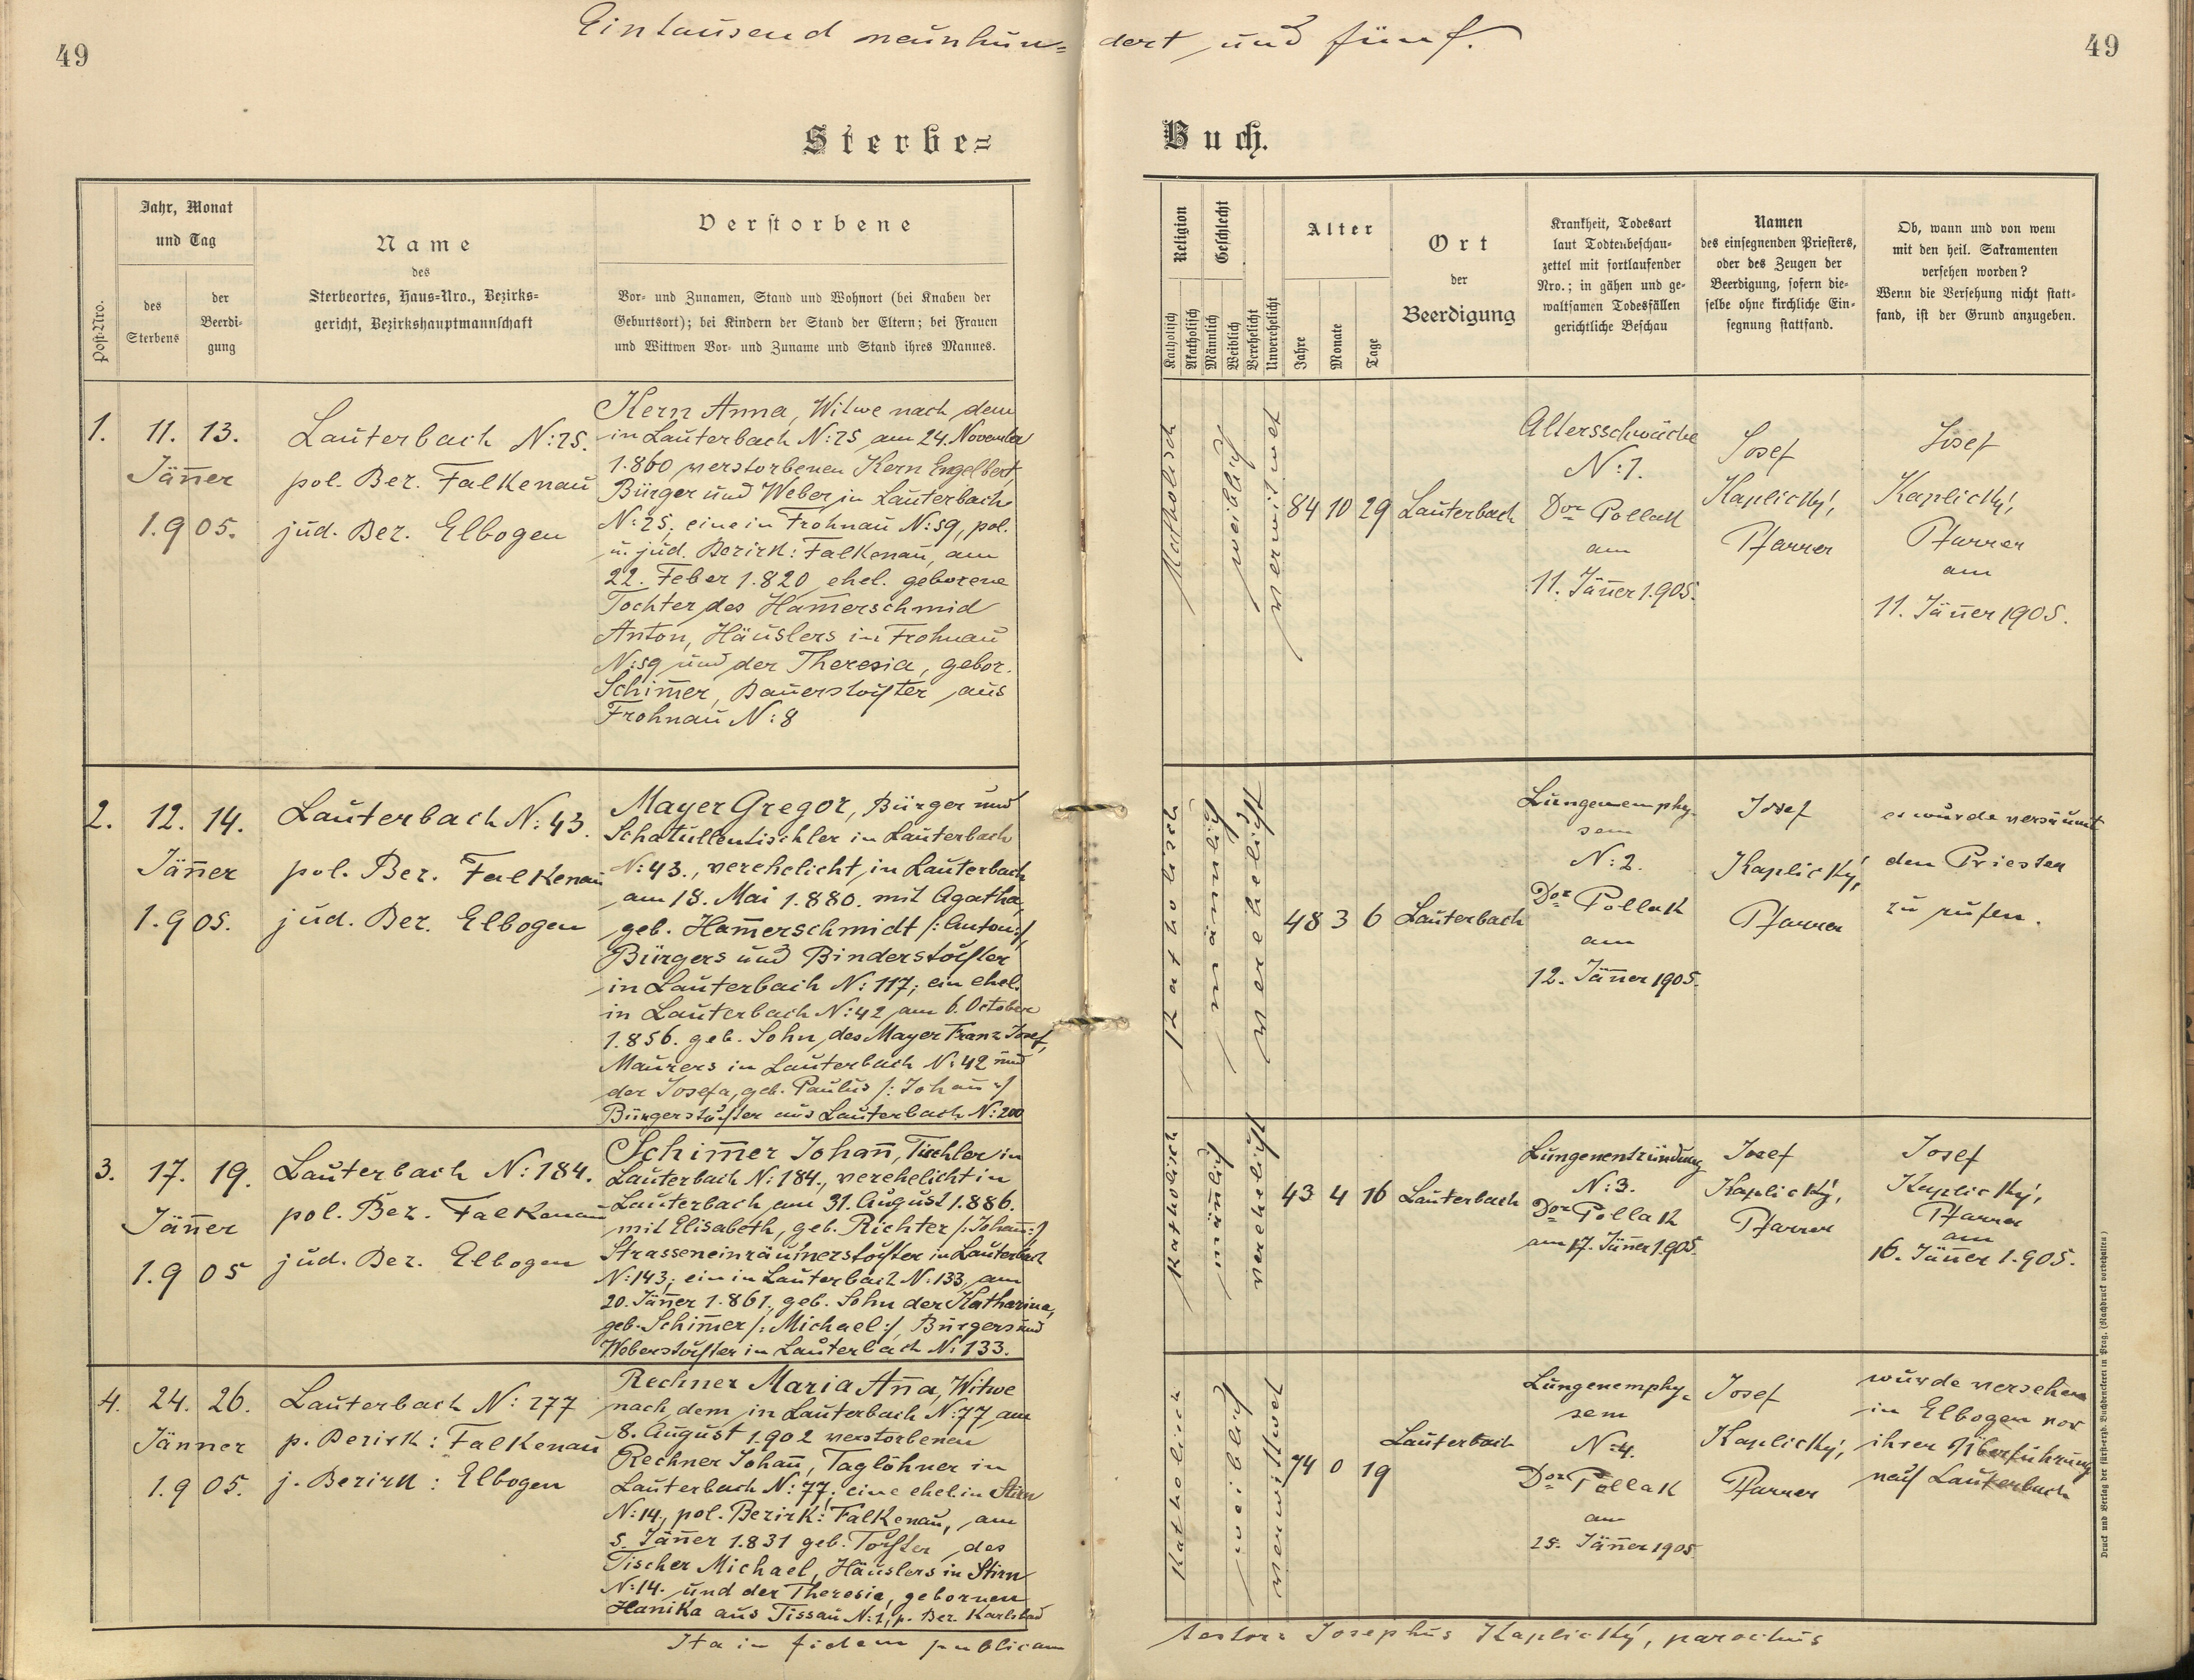 49
Eintausend neunhun= dert und fünf.
49
Sterbe= Buch.
Post-Nro.
Jahr, Monat
und Tag
des
Sterbens
der
Beerdi-
gung
Name
des
Sterbeortes, Haus-Nro., Bezirks-
gericht, Bezirkshauptmannschaft
Verstorbene
Vor- und Zunamen, Stand und Wohnort (bei Knaben der
Geburtsort); bei Kindern der Stand der Eltern; bei Frauen
und Wittwen Vor- und Zuname und Stand ihres Mannes.
Religion
Katholisch
Akatholisch
Geschlecht
Männlich
Weiblich
Verehelicht
Unverehelicht
Alter
Jahre
Monate
Tage
Ort
der
Beerdigung
Krankheit, Todesart
laut Todtenbeschau-
zettel mit fortlaufender
Nro.; in gähen und ge-
waltsamen Todesfällen
gerichtliche Beschau
Namen
des einsegnenden Priesters,
oder des Zeugen der
Beerdigung, sofern die-
selbe ohne kirchliche Ein-
segnung stattfand.
Ob, wann und von wem
mit den heil. Sakramenten
versehen worden?
Wenn die Versehung nicht statt-
fand, ist der Grund anzugeben.
1.
11. 13.
Jän̄er
1.905.
Lauterbach N:25.
pol. Bez. Falkenau
jud. Bez. Elbogen
Kern Anna, Witwe nach dem
in Lauterbach N:25 am 24. November
1.860 verstorbenen Kern Engelbert,
Bürger und Weber, in Lauterbach
N:25, eine in Frohnau N:59, pol.
u. jud. Bezirk: Falkenau, am
22. Feber 1.820 ehel. geborene
Tochter des Ham̄erschmid
Anton, Häuslers in Frohnau
N:59 und der Theresia, gebor.
Schim̄er, Bauerstochter aus
Frohnau N:8
Katholisch
weiblich
verwitwet
84 10 29
Lauterbach
Altersschwäche
N:1.
Dor Pollak
am
11. Jän̄er 1.905.
Josef
Kaplický,
Pfarrer
Josef
Kaplický,
Pfarrer
am
11. Jän̄er 1905.
2.
12. 14.
Jän̄er
1.905.
Lauterbach N:43.
pol. Bez. Falkenau
jud. Bez. Elbogen
Mayer Gregor, Bürger und
Schatullentischler in Lauterbach
N:43., verehelicht in Lauterbach
am 18. Mai 1.880. mit Agatha,
geb. Ham̄erschmidt /:Anton:/,
Bürgers und Binderstochter
in Lauterbach N:117; ein ehel.
in Lauterbach N:42 am 6. October
1.856. geb. Sohn des Mayer Franz Josef,
Maurers in Lauterbach N:42 und
der Josefa, geb. Paulus /:Johan̄:/
Bürgerstochter aus Lauterbach N:200
Katholisch
männlich
verehelicht
48 3 6
Lauterbach
Lungenemphy-
sem
N:2.
Dor Pollak
am
12. Jän̄er 1905.
Josef
Kaplický,
Pfarrer
es wurde versäumt
den Priester
zu rufen.
3.
17. 19.
Jän̄er
1.905
Lauterbach N:184.
pol. Bez. Falkenau
jud. Bez. Elbogen
Schim̄er Johan̄, Tischler in
Lauterbach N:184., verehelicht in
Lauterbach am 31. August 1.886.
mit Elisabeth, geb. Richter /:Johan̄:/
Strasseneinräumerstochter in Lauterbach
N:143; ein in Lauterbach N:133, am
20. Jän̄er 1.861., geb. Sohn der Katharina,
geb. Schim̄er /:Michael:/, Bürgers und
Weberstochter in Lauterbach N:133.
Katholisch
männlich
verehelicht
43 4 16
Lauterbach
Lungenentzündung
N:3.
Dor Pollak
am 17. Jän̄er 1.905.
Josef
Kaplický,
Pfarrer
Josef
Kaplický,
Pfarrer
am
16. Jän̄er 1.905.
4.
24. 26.
Jänner
1.905.
Lauterbach N: 277
p. Bezirk: Falkenau
j. Bezirk: Elbogen
Rechner Maria An̄a, Witwe
nach dem in Lauterbach N:77 am
8. August 1.902 verstorbenen
Rechner Johan̄, Taglöhner in
Lauterbach N:77; eine ehel. in Stirn
N:14, pol. Bezirk: Falkenau, am
5. Jän̄er 1.831 geb. Tochter des
Tischer Michael, Häuslers in Stirn
N:14. und der Theresia, gebornen
Hanika aus Tissau N:1, p. Bez. Karlsbad
Katholisch
weiblich
verwittwet
74 0 19
Lauterbach
Lungenemphy-
sem
N:4.
Dor Pollak
am
25. Jän̄er 1905.
Josef
Kaplický,
Pfarrer
wurde versehen
in Elbogen vor
ihrer Überführung
nach Lauterbach
Ita in fidem publicam testor: Josephus Kaplický, parochus
Druck und Verlag der fürsterzb. Buchdruckerei in Prag. (Nachdruck vorbehalten.)